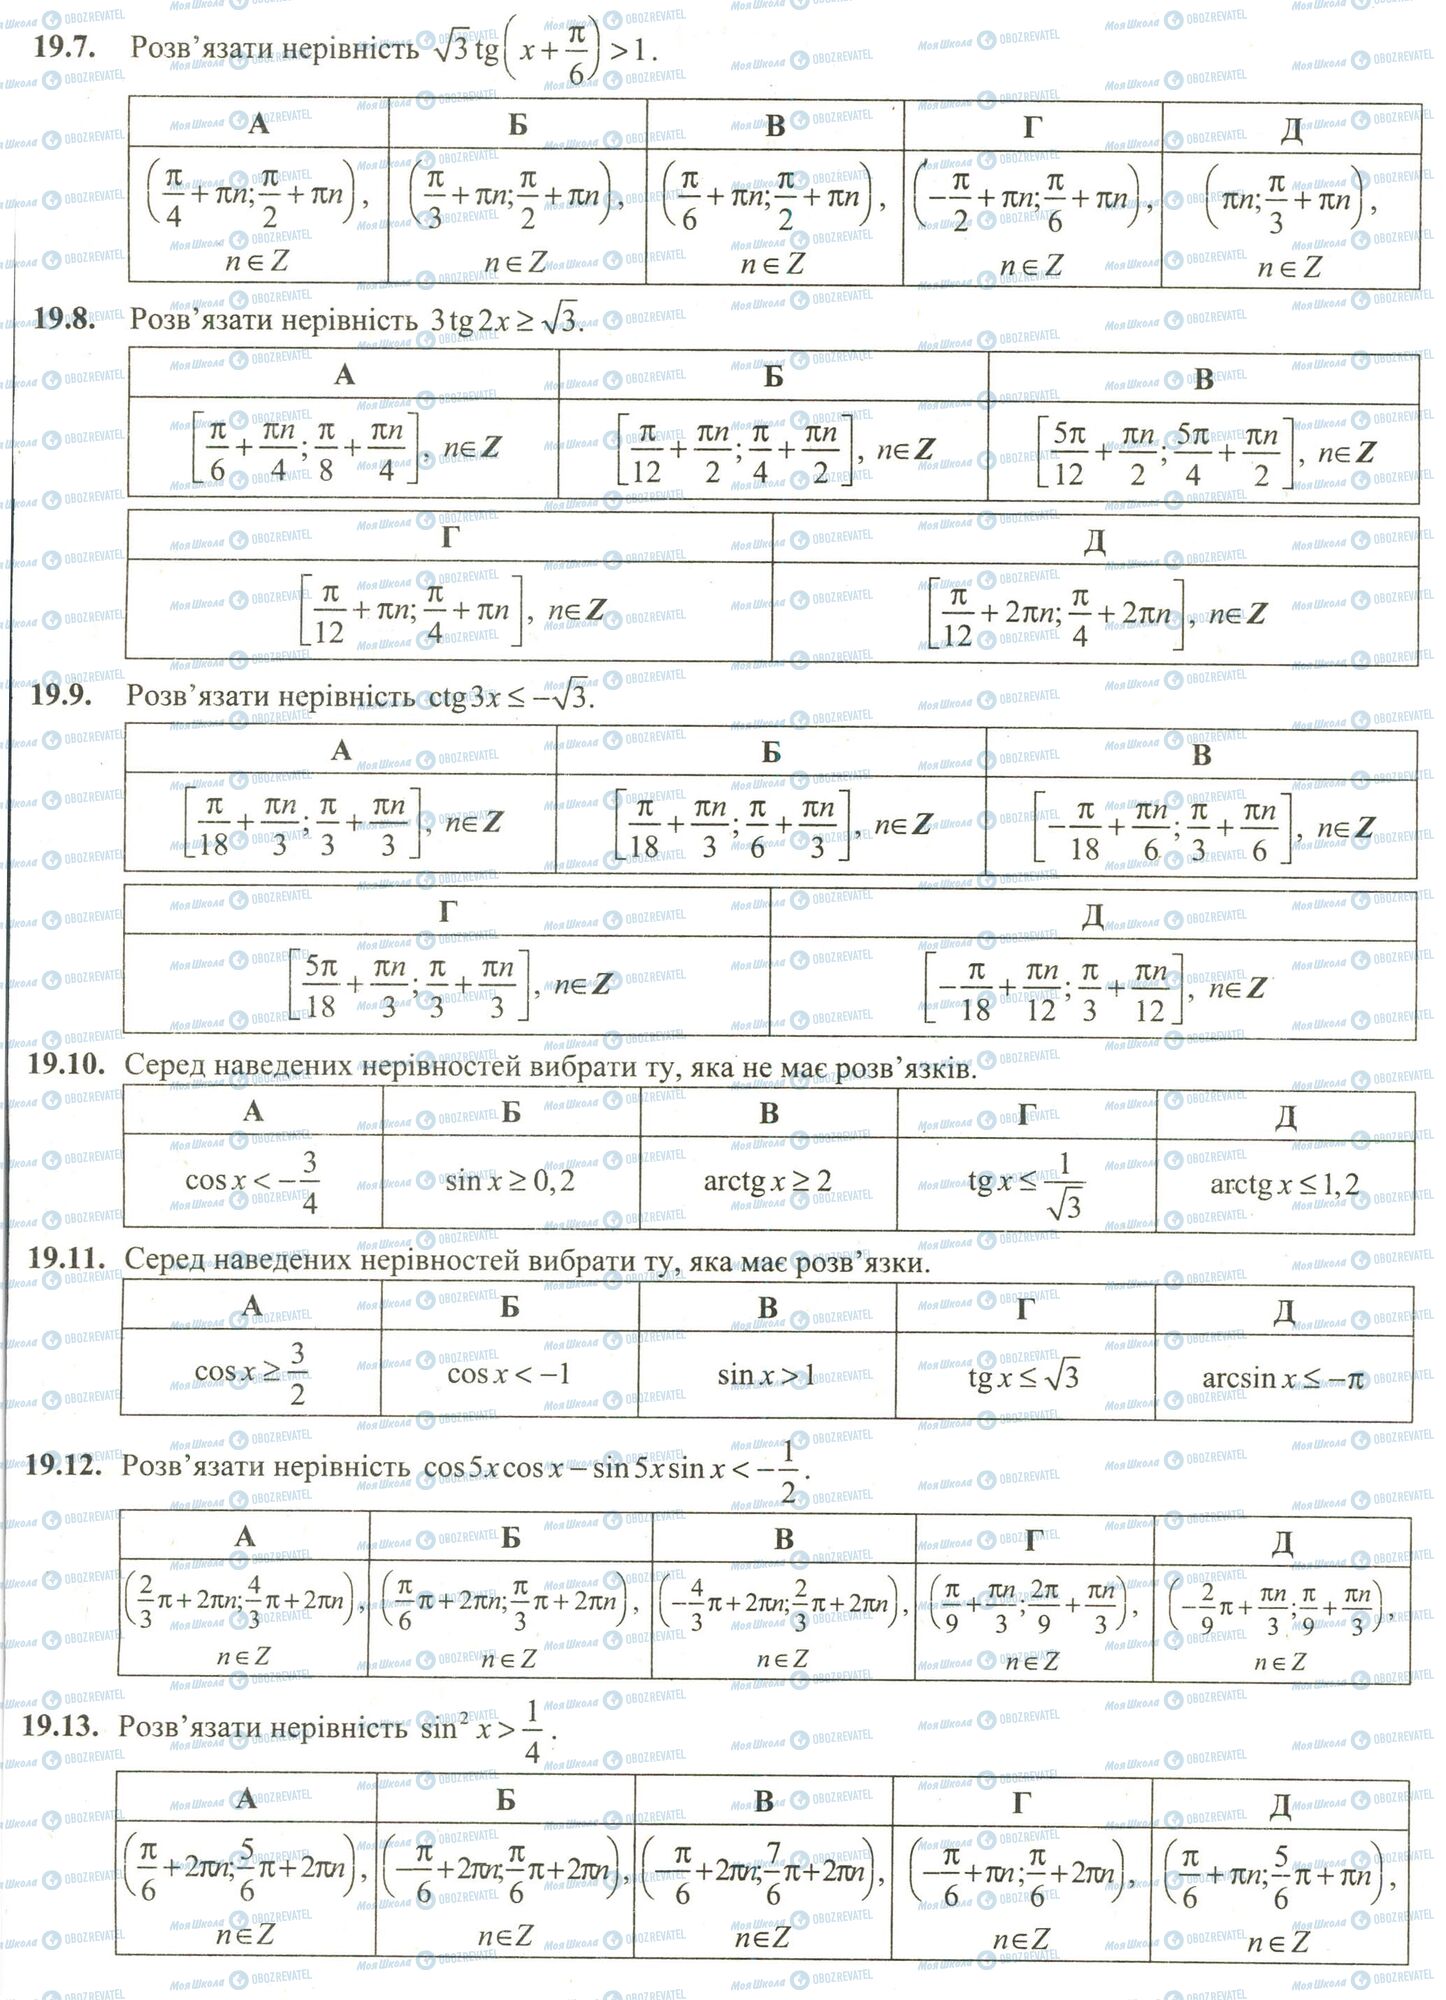 19.7. Розв'язати нерівність √3 tg(x + π/6) > 1.
А Б В Г Д
(π/4 + πn; π/2 + πn), n ∈ Z
(π/3 + πn; π/2 + πn), n ∈ Z
(π/6 + πn; π/2 + πn), n ∈ Z
(-π/2 + πn; π/6 + πn), n ∈ Z
(πn; π/3 + πn), n ∈ Z
19.8. Розв'язати нерівність 3 tg 2x ≥ √3.
А Б В
[π/6 + πn/4; π/8 + πn/4], n∈Z
[π/12 + πn/2; π/4 + πn/2], n∈Z
[5π/12 + πn/2; 5π/4 + πn/2], n∈Z
Г Д
[π/12 + πn; π/4 + πn], n∈Z
[π/12 + 2πn; π/4 + 2πn], n∈Z
19.9. Розв'язати нерівність ctg 3x ≤ -√3.
А Б В
[π/18 + πn/3; π/3 + πn/3], n∈Z
[π/18 + πn/3; π/6 + πn/3], n∈Z
[-π/18 + πn/6; π/3 + πn/6], n∈Z
Г Д
[5π/18 + πn/3; π/3 + πn/3], n∈Z
[-π/18 + πn/12; π/3 + πn/12], n∈Z
19.10. Серед наведених нерівностей вибрати ту, яка не має розв'язків.
А Б В Г Д
cos x < -3/4
sin x ≥ 0,2
arctg x ≥ 2
tg x ≤ 1/√3
arctg x ≤ 1,2
19.11. Серед наведених нерівностей вибрати ту, яка має розв'язки.
А Б В Г Д
cos x ≥ 3/2
cos x < -1
sin x > 1
tg x ≤ √3
arcsin x ≤ -π
19.12. Розв'язати нерівність cos 5x cos x - sin 5x sin x < -1/2.
А Б В Г Д
(2/3 π + 2πn; 4/3 π + 2πn), n ∈ Z
(π/6 π + 2πn; π/3 π + 2πn), n ∈ Z
(-4/3 π + 2πn; 2/3 π + 2πn), n ∈ Z
(π/9 + πn/3; 2π/9 + πn/3), n ∈ Z
(-2/9 π + πn/3; π/9 + πn/3), n ∈ Z
19.13. Розв'язати нерівність sin² x > 1/4.
А Б В Г Д
(π/6 + 2πn; 5/6 π + 2πn), n∈Z
(-π/6 + 2πn; π/6 π + 2πn), n∈Z
(-π/6 + 2πn; 7/6 π + 2πn), n∈Z
(-π/6 + πn; π/6 + 2πn), n∈Z
(π/6 + πn; 5/6 π + πn), n ∈ Z
МояШкола OBOZREVATEL